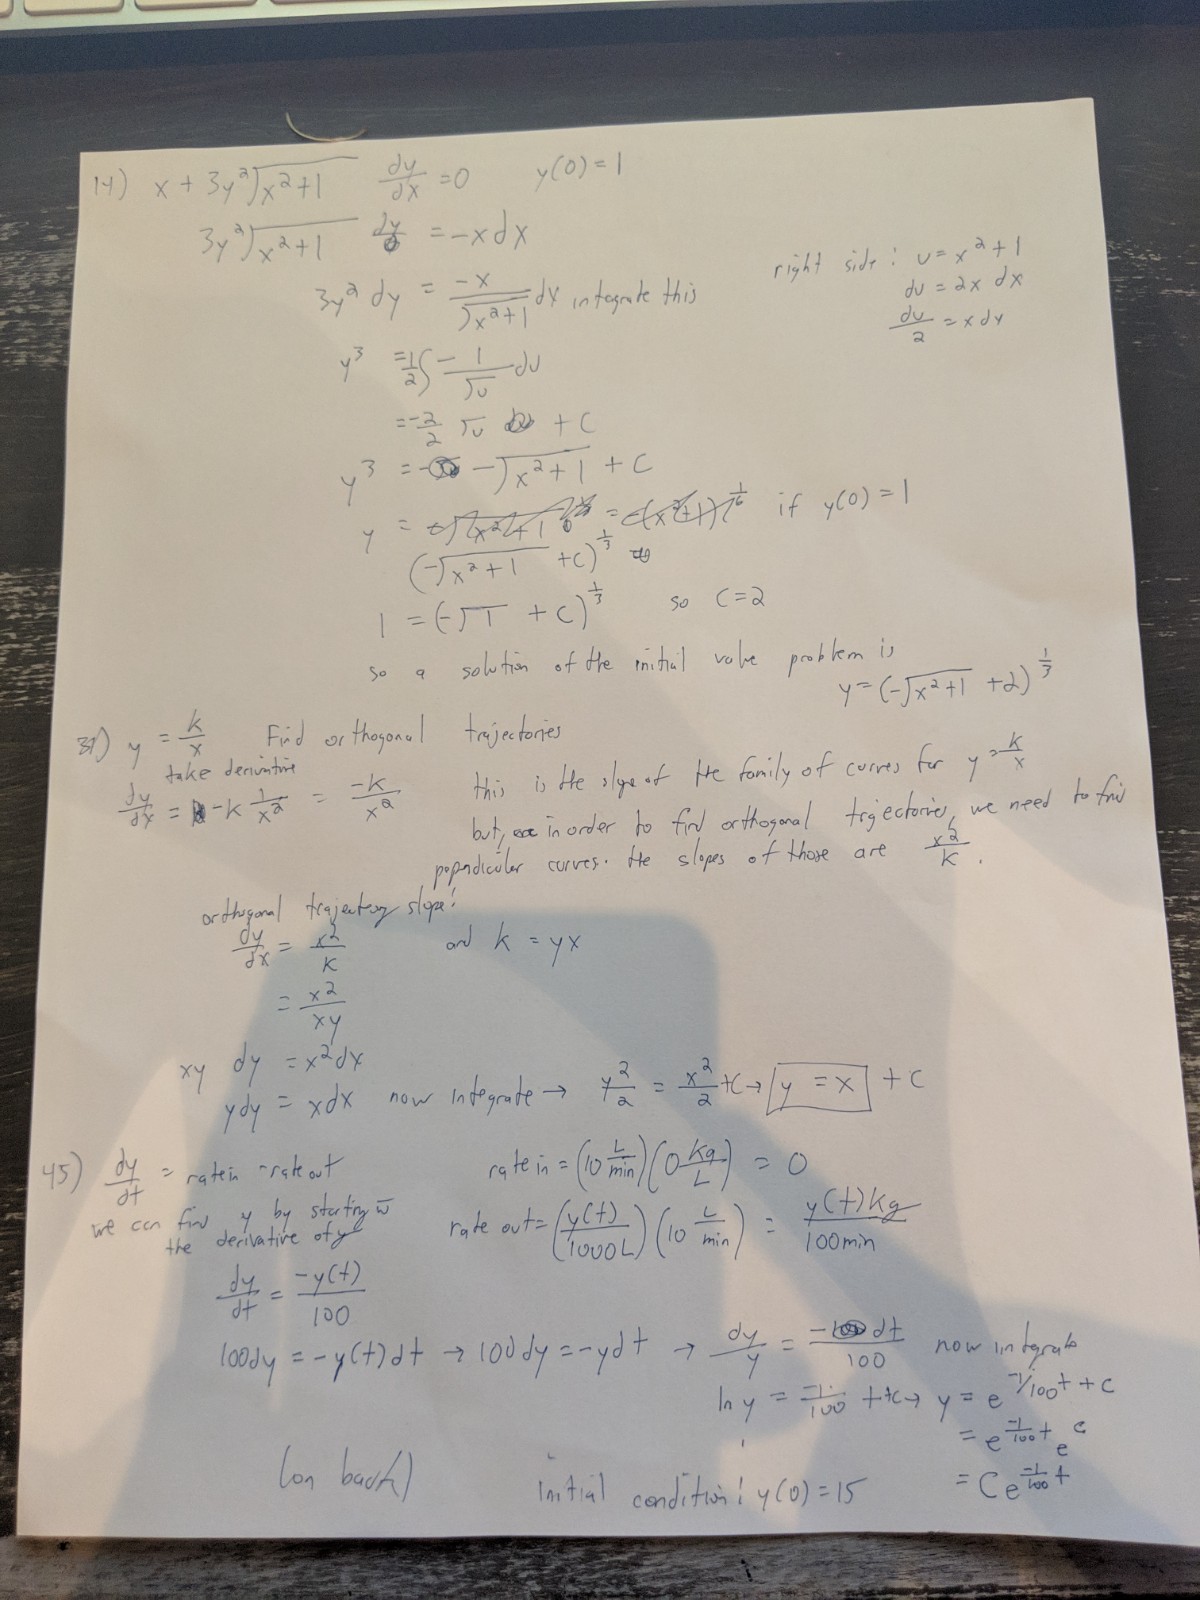 14) x + 3y²√(x²+1) dy/dx = 0 y(0) = 1
3y²√(x²+1) dy = -x dx
3y² dy = -x/√(x²+1) dx integrate this
right side: u = x² + 1
du = 2x dx
du/2 = x dx
y³ = 1/2 ∫ - 1/√u du
= -2/2 √u + C
y³ = - √(x²+1) + C
y = (-√(x²+1) + C)^(1/3) if y(0) = 1
1 = (-√1 + C)^(1/3) so C = 2
so a solution of the initial value problem is
y = (-√(x²+1) + 2)^(1/3)
31) y = k/x Find orthogonal trajectories
take derivative
dy/dx = -k 1/x² = -k/x²
this is the slope of the family of curves for y = k/x
but, in order to find orthogonal trajectories, we need to find
perpendicular curves. the slopes of those are x²/k.
orthogonal trajectory slope:
dy/dx = x²/k and k = yx
= x²/xy
xy dy = x² dx
y dy = x dx now integrate → y²/2 = x²/2 + C → y = x + C
45) dy/dt = rate in - rate out
rate in = (10 L/min)(0 kg/L) = 0
we can find y by starting w
the derivative of y
rate out = (y(t)/1000L)(10 L/min) = y(t)kg/100min
dy/dt = -y(t)/100
100dy = -y(t)dt → 100dy = -ydt → dy/y = -dt/100 now integrate
ln y = -1/100 t + C → y = e^(-1/100 t + C)
= e^(-1/100 t) e^C
= Ce^(-1/100 t)
(on back)
initial condition: y(0) = 15